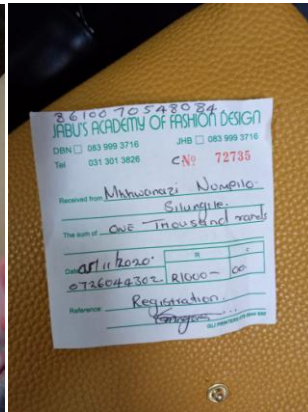 8610070548084
JABU'S ACADEMY OF FASHION DESIGN
DBN 083 999 3716 JHB 083 999 3716
Tel 031 301 3826 C No 72735
Received from Mkhwanazi Nompilo
Silungile.
The sum of One Thousand rands
Date 11/2020. R C
0726044302. R1000 — 00
Reference Registration.